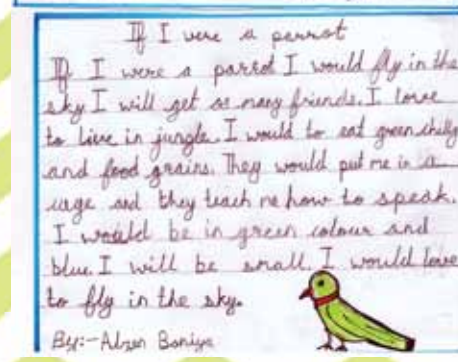 If I were a parrot
If I were a parrot I would fly in the
sky I will get as many friends. I love
to live in jungle. I would to eat green chilly
and food grains. They would put me in a
cage and they teach me how to speak.
I would be in green colour and
blue. I will be small. I would love
to fly in the sky.
By:- Alzen Baniya